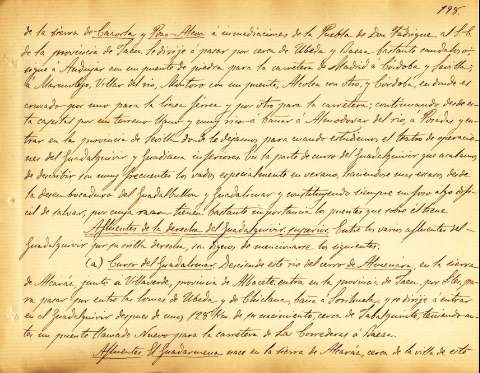 195.
de la sierra de Cazorla y Pozo-Alcon á inmediaciones de la Puebla de Don Fadrique, al S.E.
de la provincia de Jaen, se dirige á pasar por cerca de Ubeda y Baeza bastante caudaloso;
sigue á Andujar con un puente de piedra para la carretera de Madrid á Córdoba y Sevilla;
á Marmolejo, Villar del rio, Montoro con un puente, Alcolea con otro, y Córdoba, en donde es
cruzado por uno para la linea ferrea y por otro para la carretera; continuando desde es-
ta capital por un terreno llano y muy rico á bañar á Almodovar del rio, á Posadas y en-
trar en la provincia de Sevilla donde lo dejamos para cuando estudiemos el teatro de operacio-
nes del Guadalquivir y Guadiana inferiores. En la parte de curso del Guadalquivir que acabamos
de describir son muy frecuentes los vados especialmente en verano, haciendose mas escasos desde
la desembocadura del Guadalbullon y Guadalimar y constituyendo siempre un foso algo difi-
cil de salvar, por cuya razon tienen bastante importancia los puentes que sobre él tiene.
Afluentes de la derecha del Guadalquivir superior. Entre los varios afluentes del
Guadalquivir por su orilla derecha, son dignos de mencionarse los siguientes.
(a) Curso del Guadalimar. Desciende este rio del cerro de Almenara, en la sierra
de Alcaráz, junto á Villaverde, provincia de Albacete, entra en la provincia de Jaen, por Siles, pa-
ra pasar por entre las lomas de Ubeda y de Chiclana, baña á Sorihuela, y se dirige á entrar
en el Guadalquivir despues de unos 128 Km. de su nacimiento, cerca de Tabalquinto, teniendo an-
tes un puente llamado Nuevo para la carretera de La Corredera á Baeza.
Afluentes. El Guadarmena nace en la sierra de Alcaráz, cerca de la villa de este